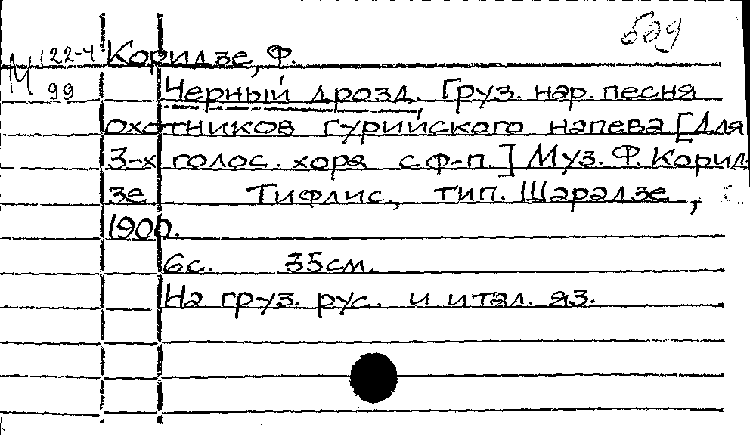 М 122-4
99
Коридзе, Ф.
Черный дрозд. Груз. нар. песня
охотников гурийского напева [Для
3-х голос. хора с ф-п.] Муз. Ф. Корид-
зе Тифлис, тип. Шарадзе,
1900.
6с. 35см.
На груз. рус. и итал. яз.